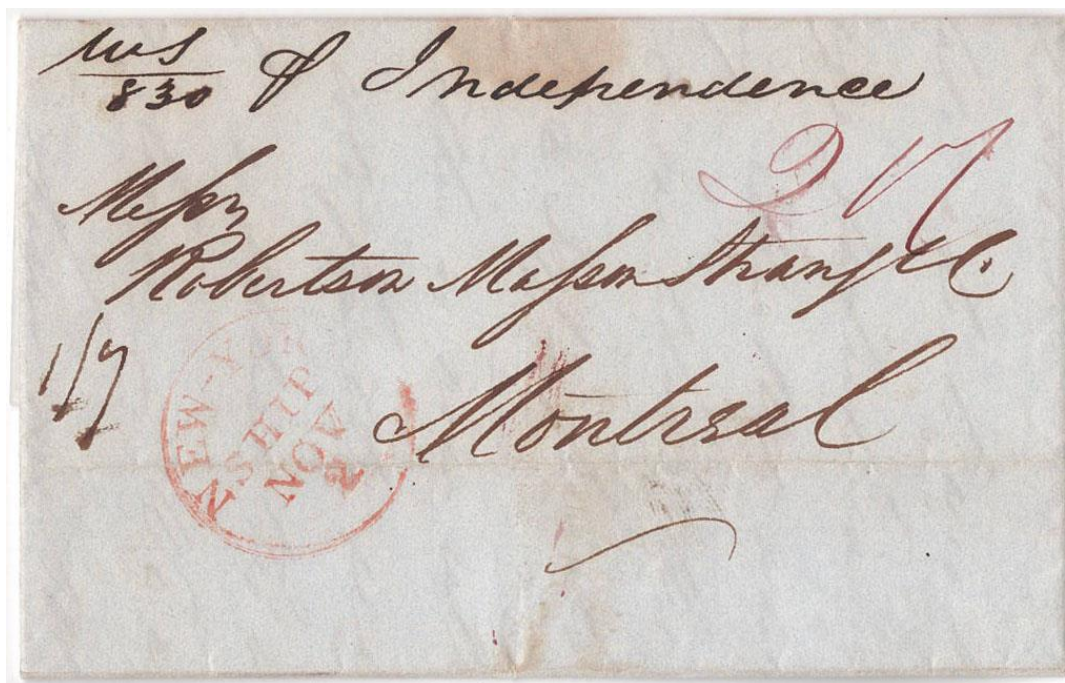 830 Independence
Messrs
Robertson Masson Strang & Co.
Montreal
1/7
NEW-YORK
SHIP
NOV
2